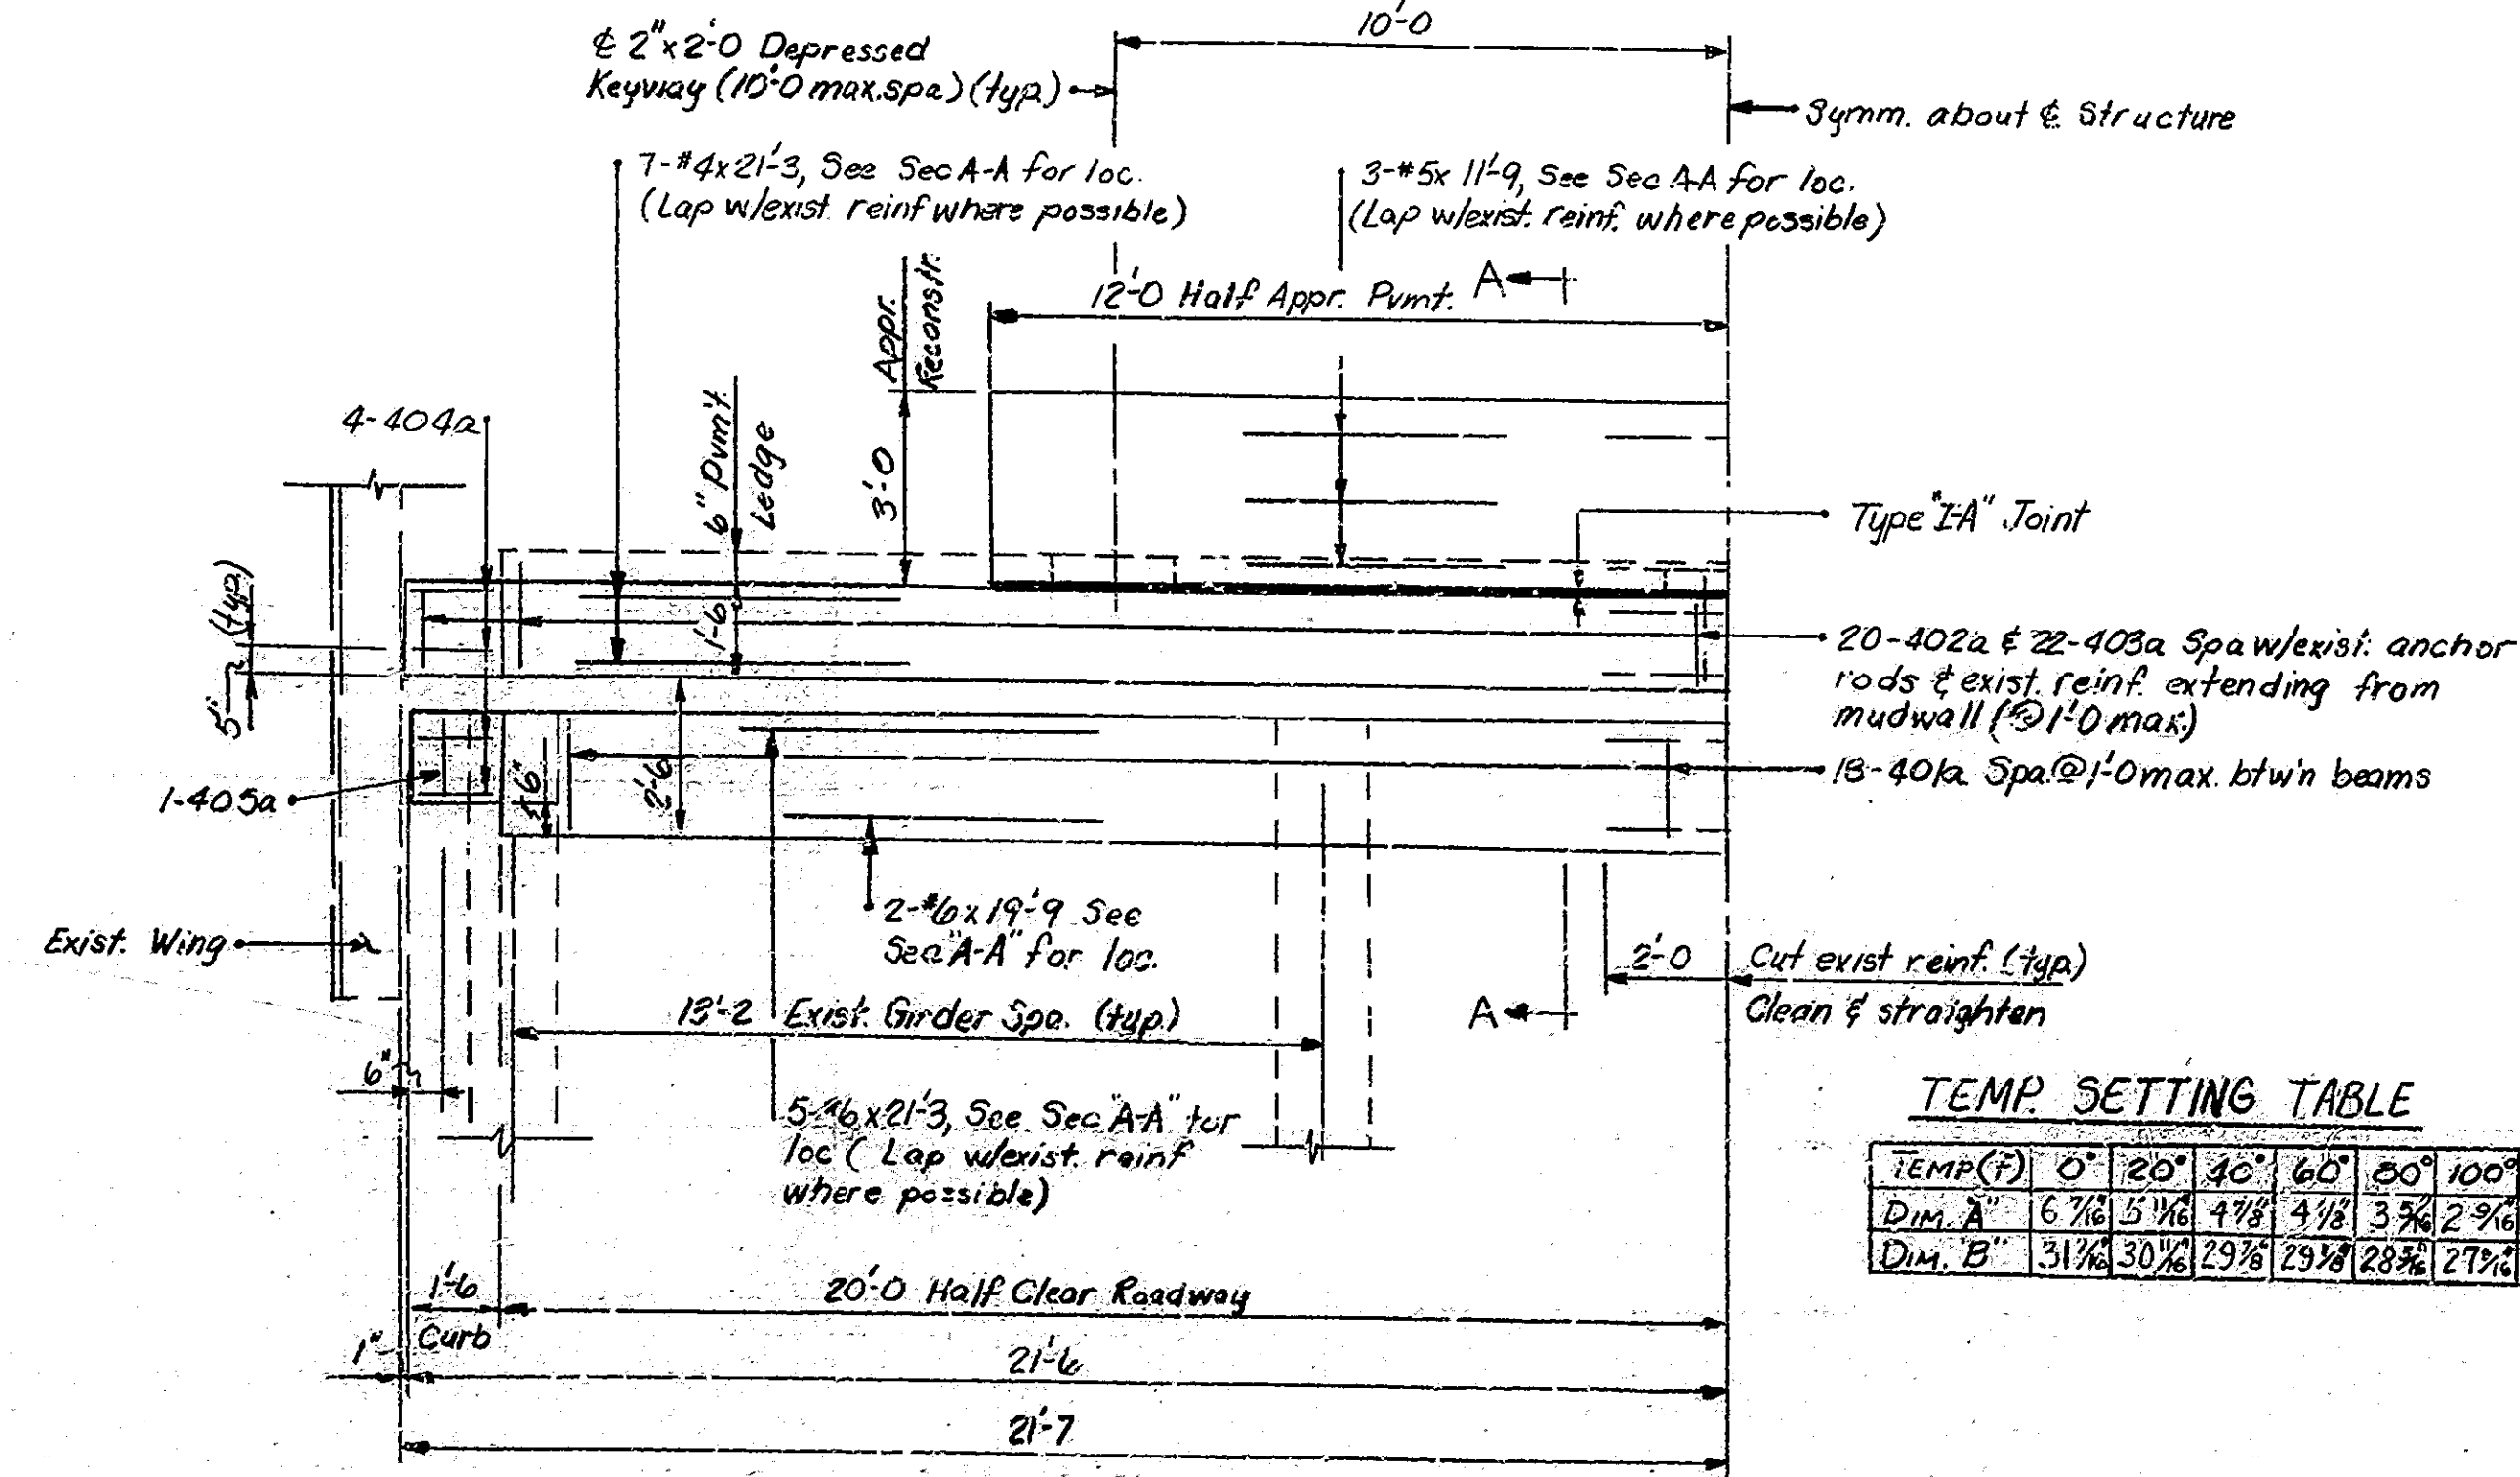 10'-0
℄ 2" x 2'-0 Depressed
Keyway (10'-0 max. spa.) (typ.)
Symm. about ℄ Structure
7-#4x21'-3, See Sec A-A for loc.
(Lap w/exist. reinf where possible)
3-#5x 11'-9, See Sec. A-A for loc.
(Lap w/exist. reinf. where possible)
12'-0 Half Appr. Pvmt.
A
Appr.
Reconstr.
3'-0
6" Pvm't.
Ledge
4-404a
Type "I-A" Joint
5" (typ.)
1'-6
20-402a & 22-403a Spa w/exist. anchor
rods & exist. reinf. extending from
mudwall (@ 1'-0 max.)
18-401a Spa. @ 1'-0 max. btw'n beams
1-405a
6"
2'-6
2-#6x19'-9 See
Sec "A-A" for loc.
Exist. Wing
2'-0
Cut exist reinf. (typ.)
Clean & straighten
13'-2 Exist. Girder Spa. (typ.)
A
6"
5-#6x21'-3, See Sec "A-A" for
loc ( Lap w/exist. reinf
where possible)
TEMP. SETTING TABLE
TEMP(F) 0° 20° 40° 60° 80° 100°
DIM. "A" 6 7/16" 5 11/16" 4 7/8" 4 1/8" 3 5/16" 2 9/16"
DIM. "B" 31 7/16" 30 11/16" 29 7/8" 29 1/8" 28 5/16" 27 9/16"
1'-6
Curb
20'-0 Half Clear Roadway
1"
21'-6
21'-7